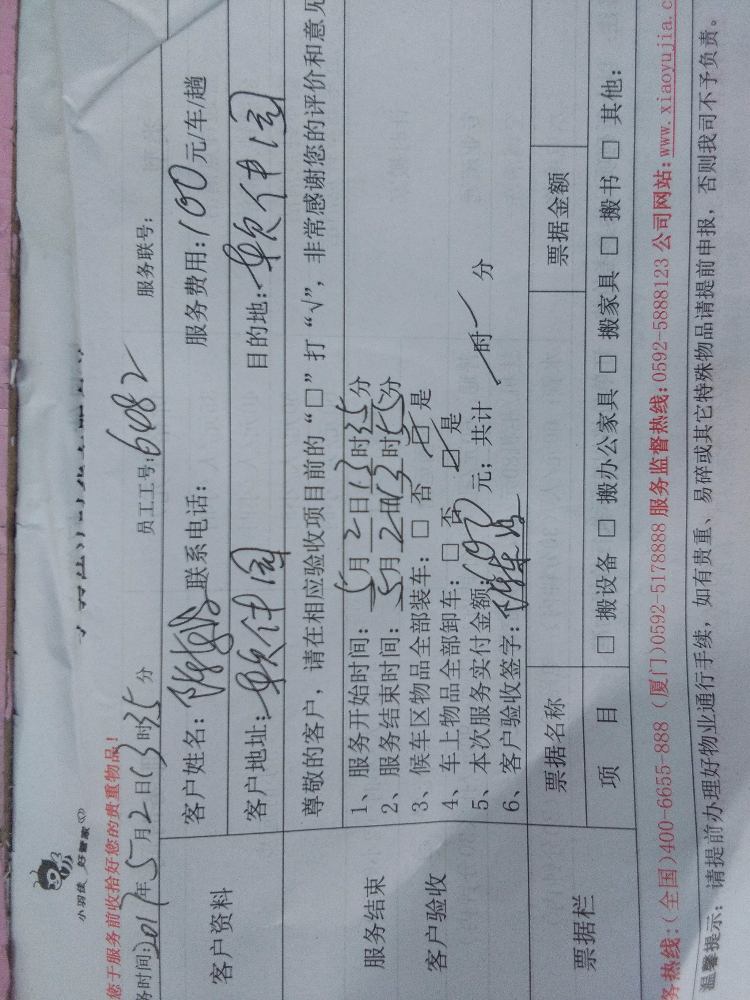 小羽佳 好管家
您于服务前收拾好您的贵重物品!
务时间:2017年5月2日13时35分 员工工号:6482 服务联号:
客户资料
客户姓名: 联系电话: 服务费用:100元/车/趟
客户地址:软件园 目的地:软件园
服务结束
客户验收
尊敬的客户,请在相应验收项目前的“□”打“√”,非常感谢您的评价和意见
1、服务开始时间:5月2日13时35分
2、服务结束时间:5月2日13时55分
3、候车区物品全部装车:□ 否 ☑ 是
4、车上物品全部卸车:□ 否 ☑ 是
5、本次服务实付金额:100元;共计 时 分
6、客户验收签字:
票据栏
票据名称 票据金额
项 目 □ 搬设备 □ 搬办公家具 □ 搬家具 □ 搬书 □ 其他:
务热线:(全国)400-6655-888 (厦门)0592-5178888 服务监督热线:0592-5888123 公司网站:www.xiaoyujia.c
温馨提示:请提前办理好物业通行手续,如有贵重、易碎或其它特殊物品请提前申报,否则我司不予负责。